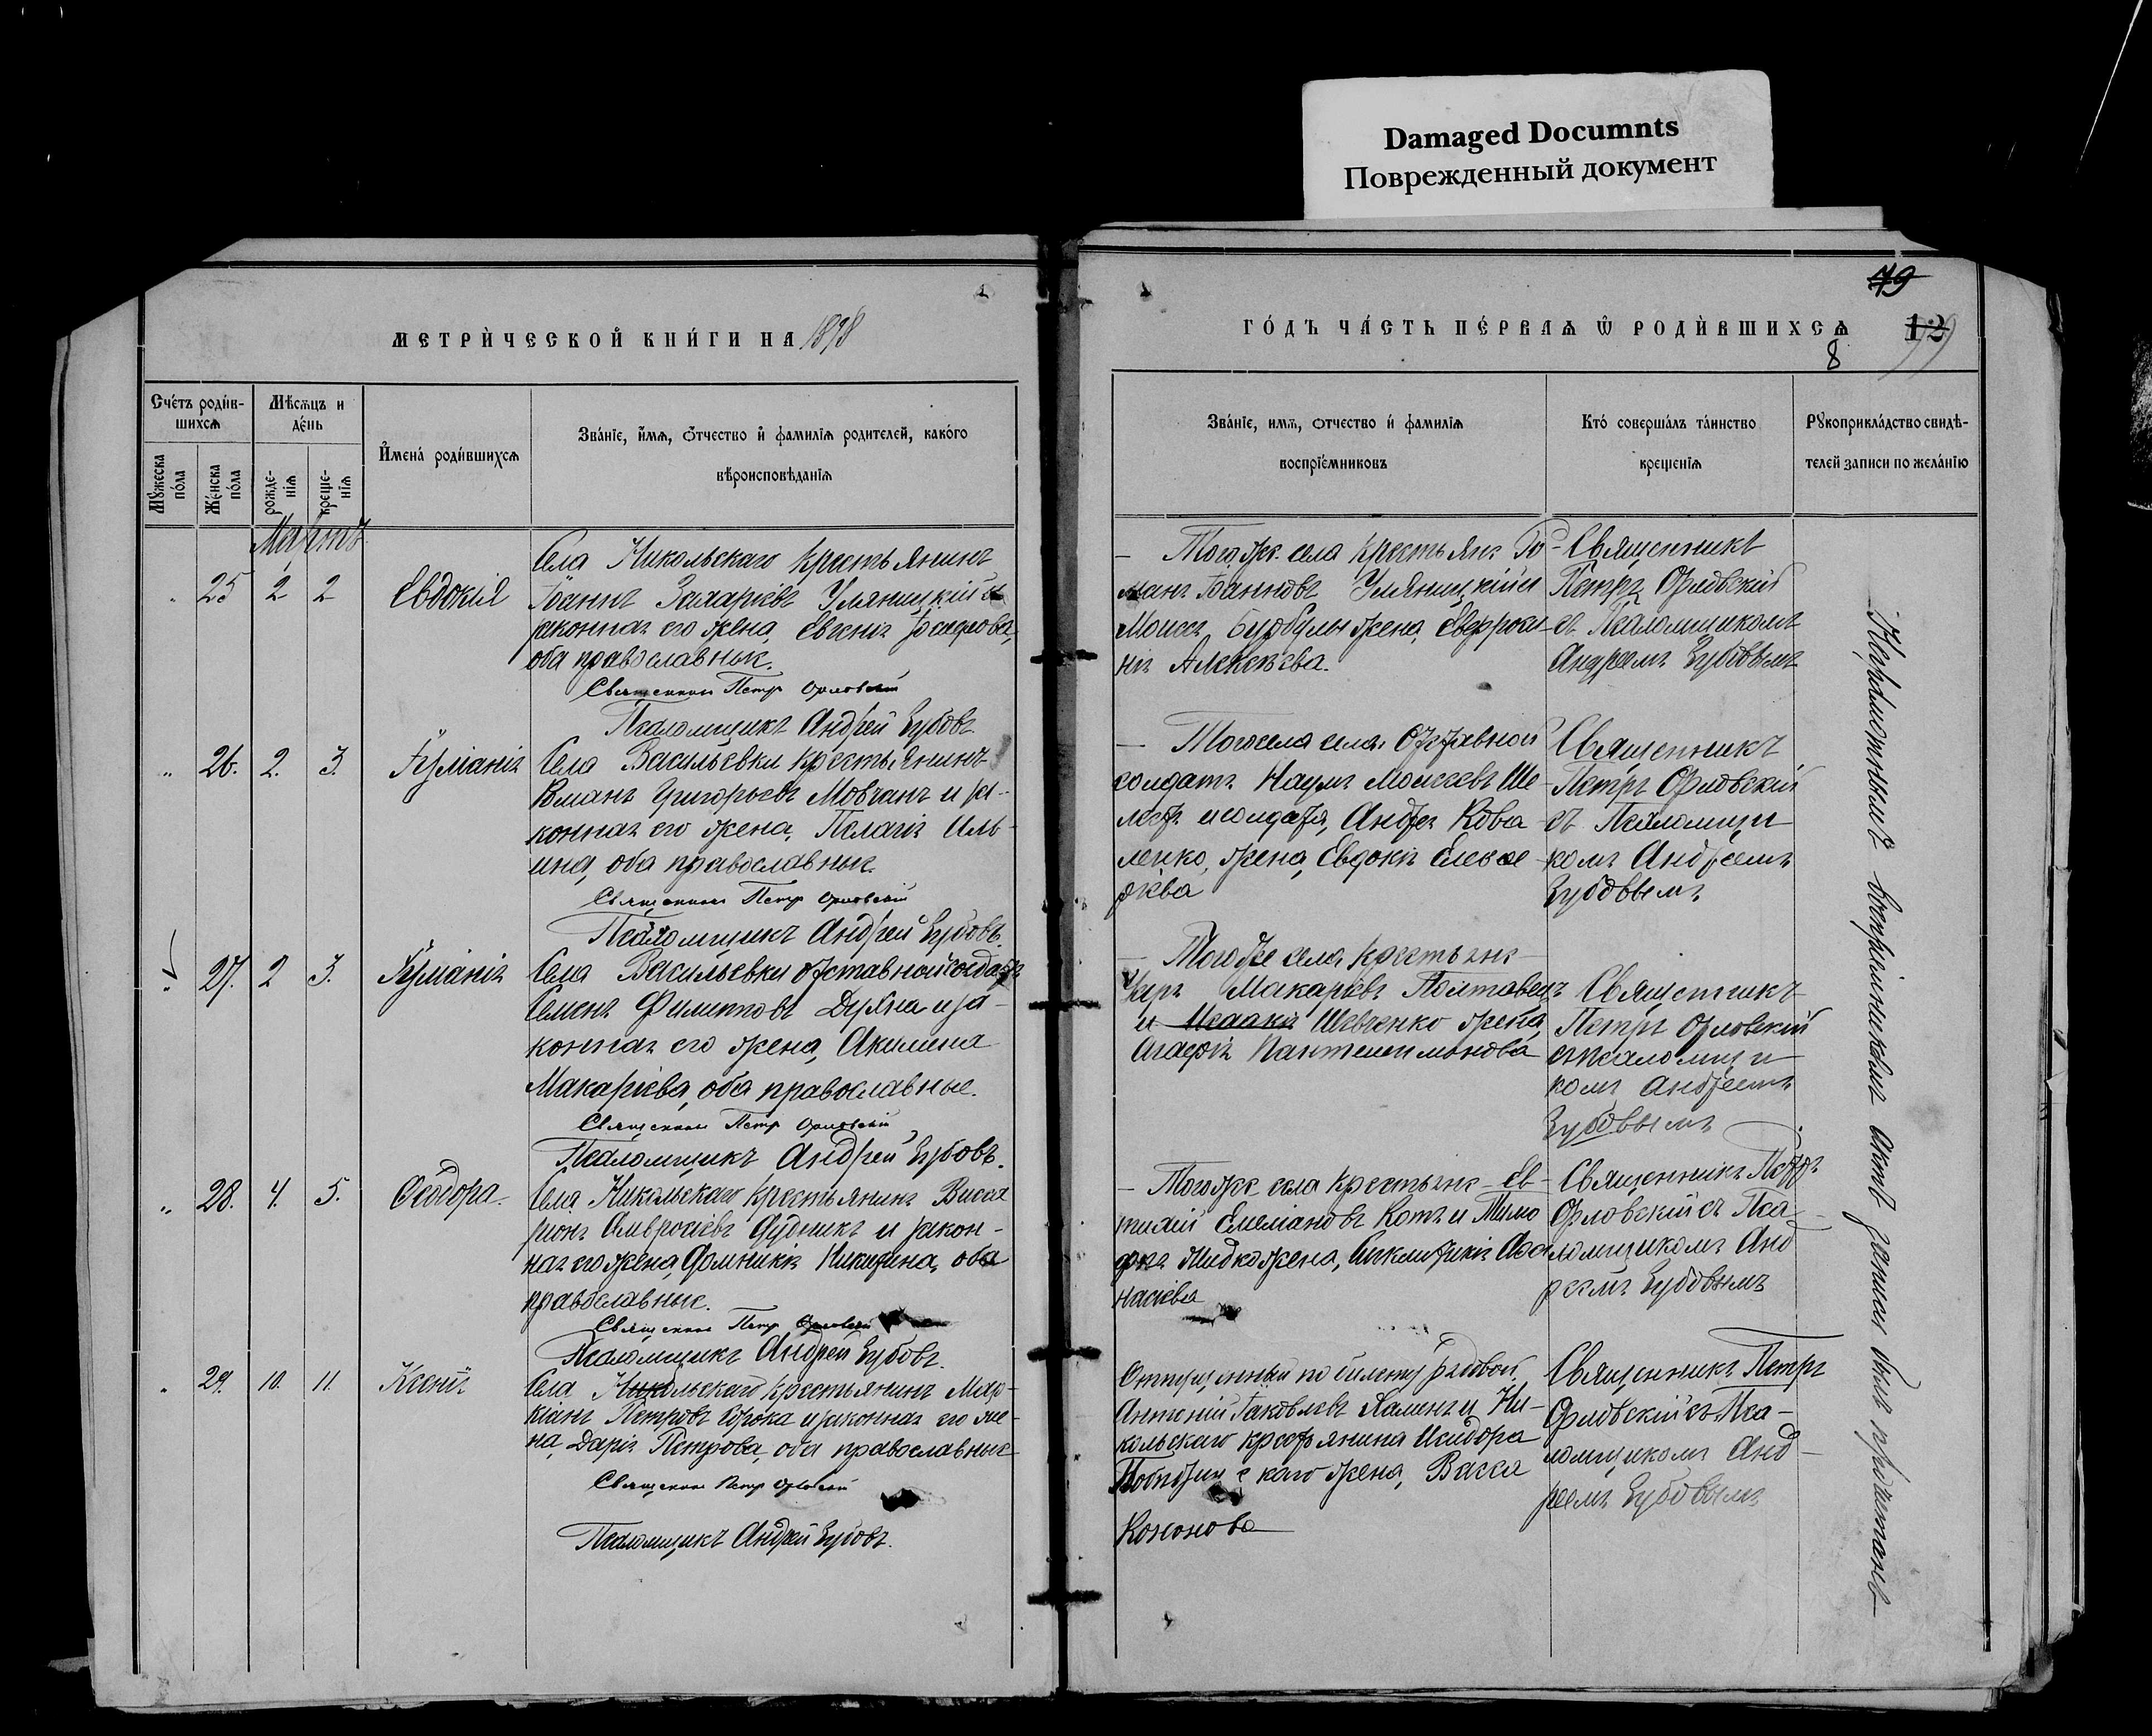 Damaged Documnts
Поврежденный документ
79
МЕТРИ́ЧЕСКОЙ КНИ́ГИ НА 1898
ГО́ДЪ ЧА́СТЬ ПЕ́РВАѦ Ѡ РОДИ́ВШИХСѦ
12
8
Счетъ роди́в-
шихсѧ
Мѣсѧцъ и
де́нь
Мꙋжеска
по́ла
Же́нска
по́ла
рожде-
нїѧ
креще-
нїѧ
И҆мена̀ роди́вшихсѧ
Зва́нїе, и҆мѧ, ѻ҆тчество и҆ фамилїѧ родителей, како́го
вѣроисповѣданїѧ
Зва́нїе, имѧ, отчество и҆ фамилїѧ
воспрїе́мниковъ
Кто̀ соверша́лъ та́инство
крещенїѧ
Рꙋкоприкла́дство свидѣ-
телей записи по жела́нїю
Мартъ
25 2 2 Евдокія
Села Никольскаго крестьянинъ
Іоаннъ Захаріевъ Уляницкій и
законная его жена, Евгенія Іосифова,
оба православные.
Священникъ Петръ Орловскій
Псаломщикъ Андрей Зубовъ
Тогоже села крестьяне Ро-
манъ Іоанновъ Уляницкій и
Моисея Бурбулы жена, Евфроси-
нія Алексѣева.
Священникъ
Петръ Орловскій
съ Псаломщикомъ
Андреемъ Зубовымъ
26. 2. 3. Іуліанія
Села Васильевки крестьянинъ
Романъ Григорьевъ Мовчанъ и за-
конная его жена, Пелагія Иль-
ина, оба православные.
Священникъ Петръ Орловскій
Псаломщикъ Андрей Зубовъ.
Тогожела села Отставной
солдатъ Наумъ Моисеевъ Ше-
лестъ и солдата, Андрея Кова-
ленко, жена, Евдокія Елевѳе-
ріева
Священникъ
Петръ Орловскій
съ Псаломщи
комъ Андреемъ
Зубовымъ
27. 2 3. Іуліанія
Села Васильевки отставной солдатъ
Семенъ Филипповъ Дуяна и за-
конная его жена, Акилина
Макаріева, оба православные.
Священникъ Петръ Орловскій
Псаломщикъ Андрей Зубовъ.
Тогоже села крестьяне
Киръ Макаріевъ Полтавецъ
и Исаакія Шевченко жена,
Агафія Пантелеимонова
Священникъ
Петръ Орловскій
съ псаломщи
комъ Андреемъ
Зубовымъ
28. 4. 5. Ѳеодора
Села Никольскаго крестьянинъ Висса
ріонъ Амвросіевъ Дудникъ и закон-
ная его жена, Домникія Никитина, оба
православные.
Священникъ Петръ Орловскій
Псаломщикъ Андрей Зубовъ.
Тогоже села крестьяне Ев-
тихій Емеліановъ Котъ и Тимо
фея Жидко жена, Синклитикія Аѳа
насіева
Священникъ Петръ
Орловскій съ Пса
ломщикомъ Анд
реемъ Зубовымъ
29. 10. 11. Ксенія
Села Никольскаго крестьянинъ Мар-
кіанъ Петровъ Сорока и законная его же-
на, Дарія Петрова, оба православные
Священникъ Петръ Орловскій
Псаломщикъ Андрей Зубовъ.
Отпущенный по билету рядовой
Антоній Іаковлевъ Халинъ и Ни-
кольскаго крестьянина Исидора
жена, Васса
Кононова
Священникъ Петръ
Орловскій съ Пса-
ломщикомъ Анд-
реемъ Зубовымъ
Неграмотнымъ воспріемникамъ актъ записи былъ прочитанъ